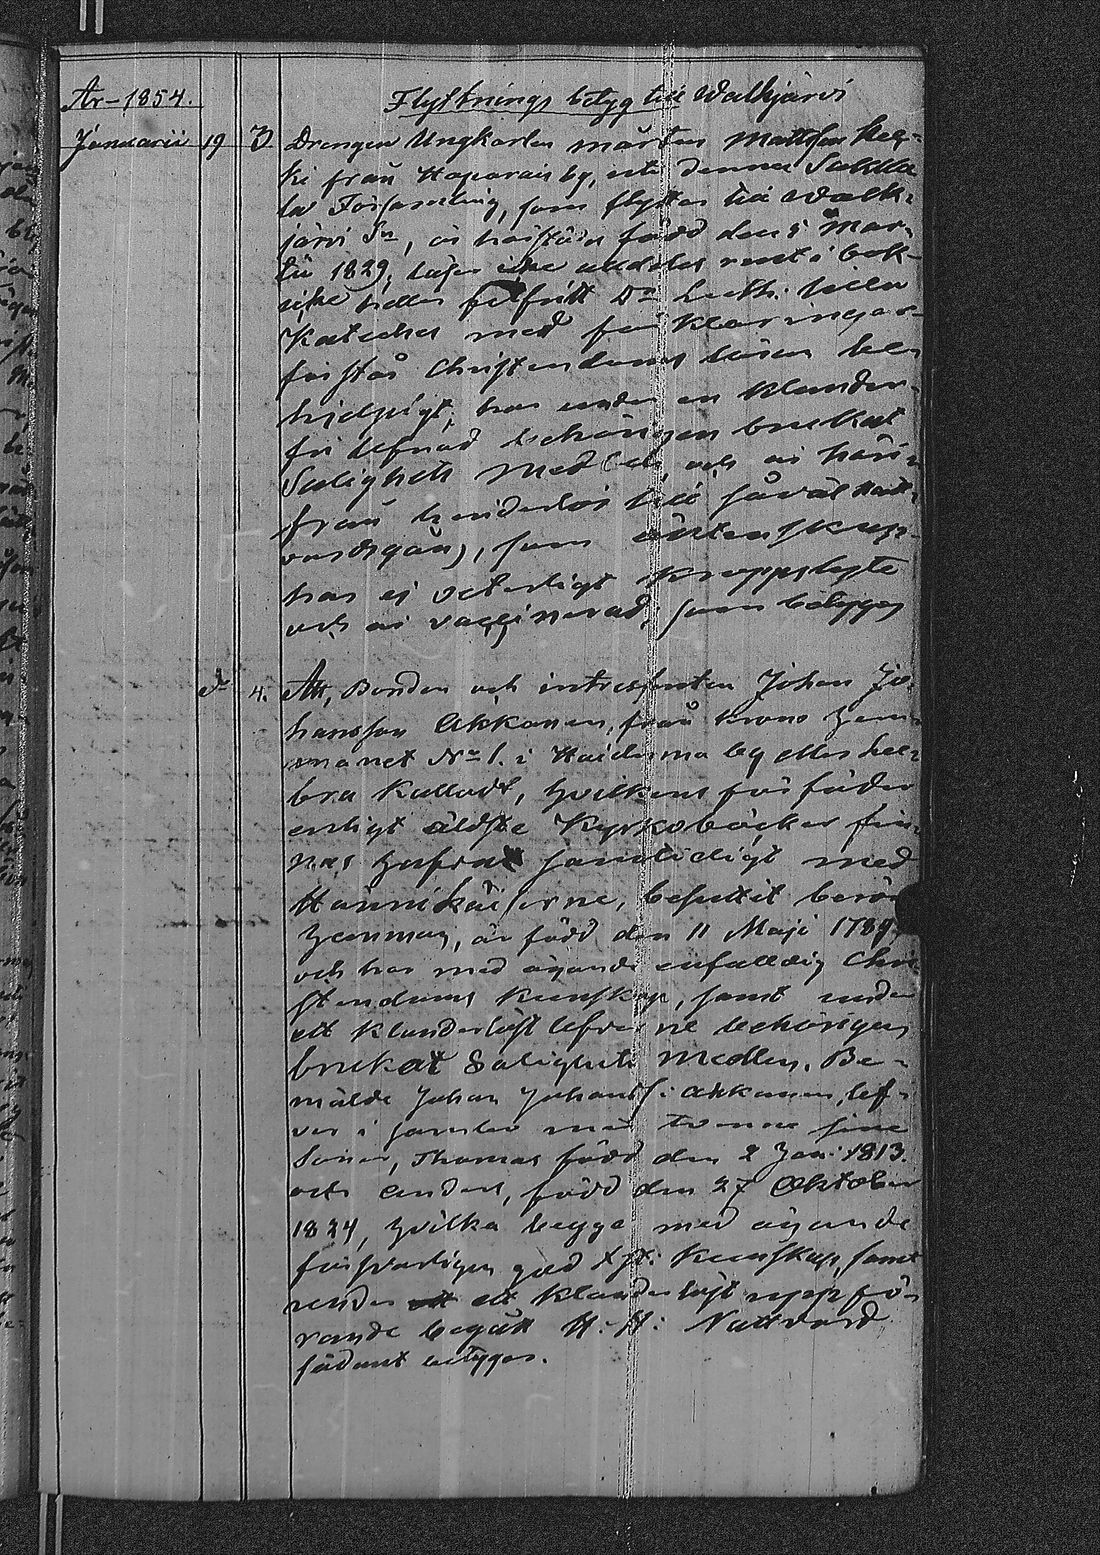 År 1854. Flyttnings betyg till Walkjärvi
Januarii 19 3. Drengen Ungkarlen Mårten Mattsson Hei-
ki från Haparais by, uti denna Sakkla
la Församling, som flyttar till Walk-
järvi Sn, är härstädes född den 5 Mar-
tii 1829, läser icke alldeles rent i bok
icke heller felfritt Dr Luth: lilla
Kateches med förklaringar
förstår Christendoms läran bene
hjelpligt, har under en klander-
fri lefnad behörigen brukat
Salighets Medlen och är häri-
från hinderlös till såväl natt-
vardsgång, som äktenskap
har ej veterligt kroppslyte
och är vaccinerad, som betygas
d. 4. Att, Bonden och intressenten Johan Jo-
hansson Akkanen, från Krono hem-
manet No 1. i Haiderma by eller
bra kalladt, hvilkens förfäder
enligt äldste Kyrkoböcker fin-
nas hafva samtidigt med
Hannikäiserne, besuttit berör
hemman, är född den 11 Maji 1789
och har med ägande enfalldig Chri
stendoms kunskap, samt under
ett klanderlöst lefverne behörigen
brukat Salighets Medlen. Be-
mälde Johan Johanss: Akkanen, lef-
ver i samlev med tvenne sine
Söner, Thomas född den 2 Jan: 1813.
och Anders, född den 27 Oktober
1824, hvilka begge med ägande
försvarligen god Xst: kunskap, samt
under ett klanderlöst uppfö
rande begått H. H: Nattvard
sådant betygas.